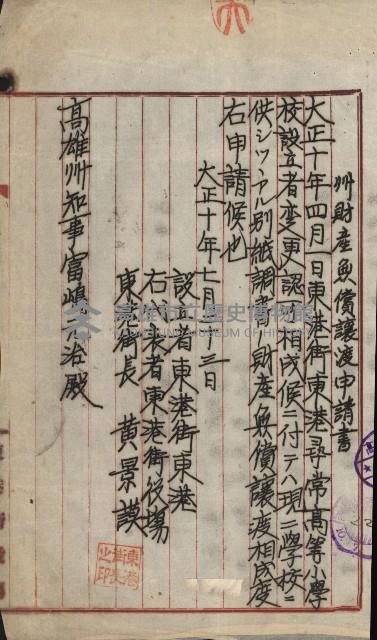 州財産無償讓渡申請書
大正十年四月一日東港街東港尋常高等小學
校設立者変更認可相成候ニ付テハ現ニ學校ニ
供シツヽアル別紙調書ノ財産無償讓渡相成度
右申請候也
大正十年七月 三日
設立者東港街東港
右代表者東港街役場
東港街長 黄景謨
高雄州知事富嶋元治殿
高雄市立歷史博物館
MUSEUM OF HISTORY
東港街長之印